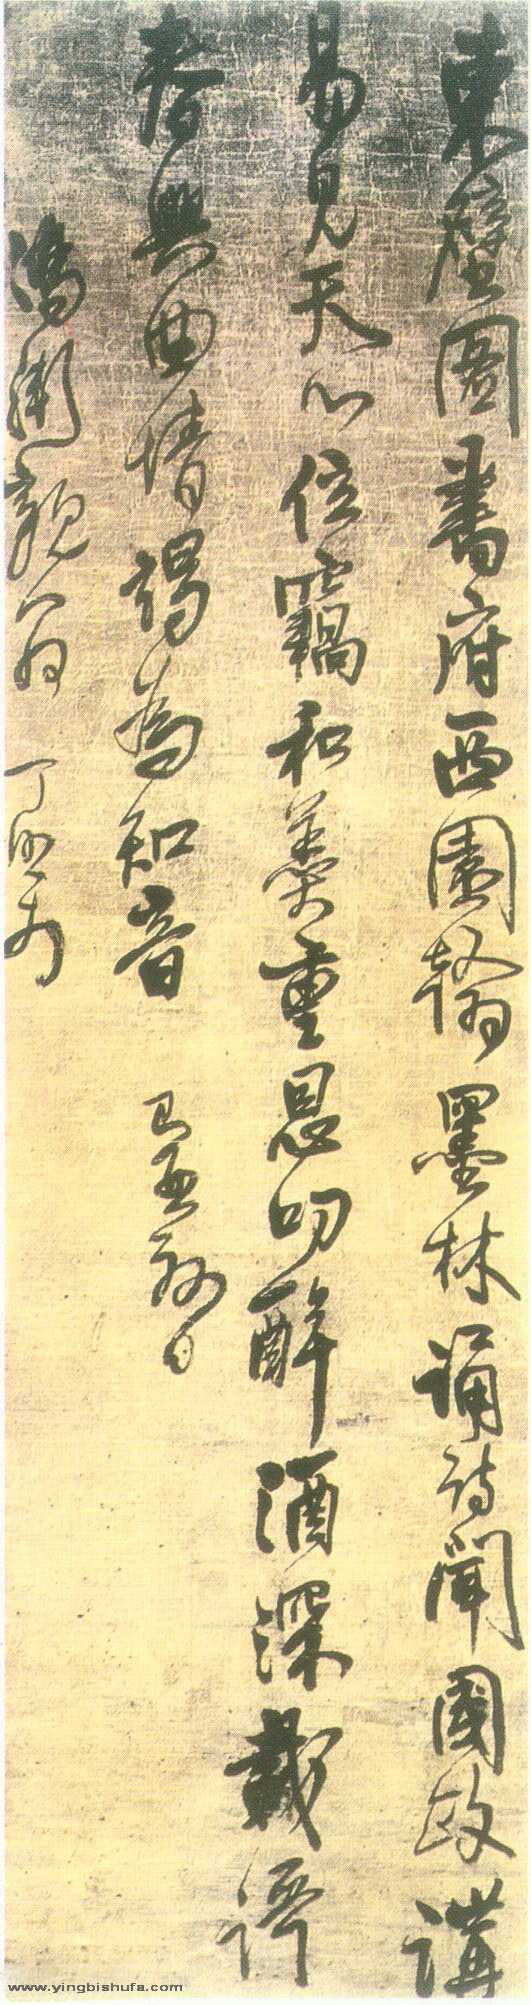 東壁圖書府西園翰墨林誦詩聞國政講
易見天心位竊和羹重恩叨醉酒深載詠
春興曲情竭為知音
為 親翁 丁
www.yingbishufa.com